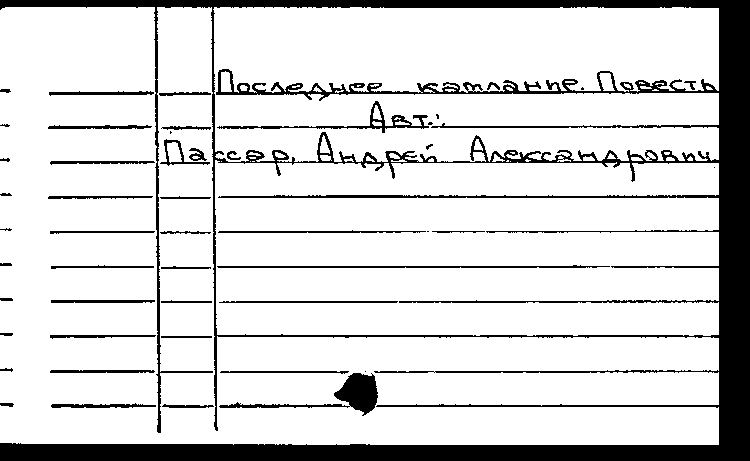 Последнее камлание. Повесть
Авт.:
Пассар, Андрей Александрович.